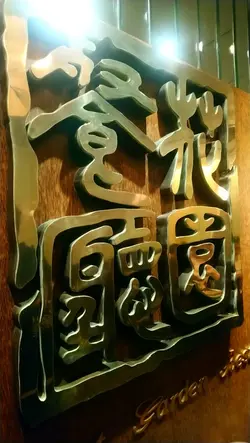 花園
餐廳
Garden